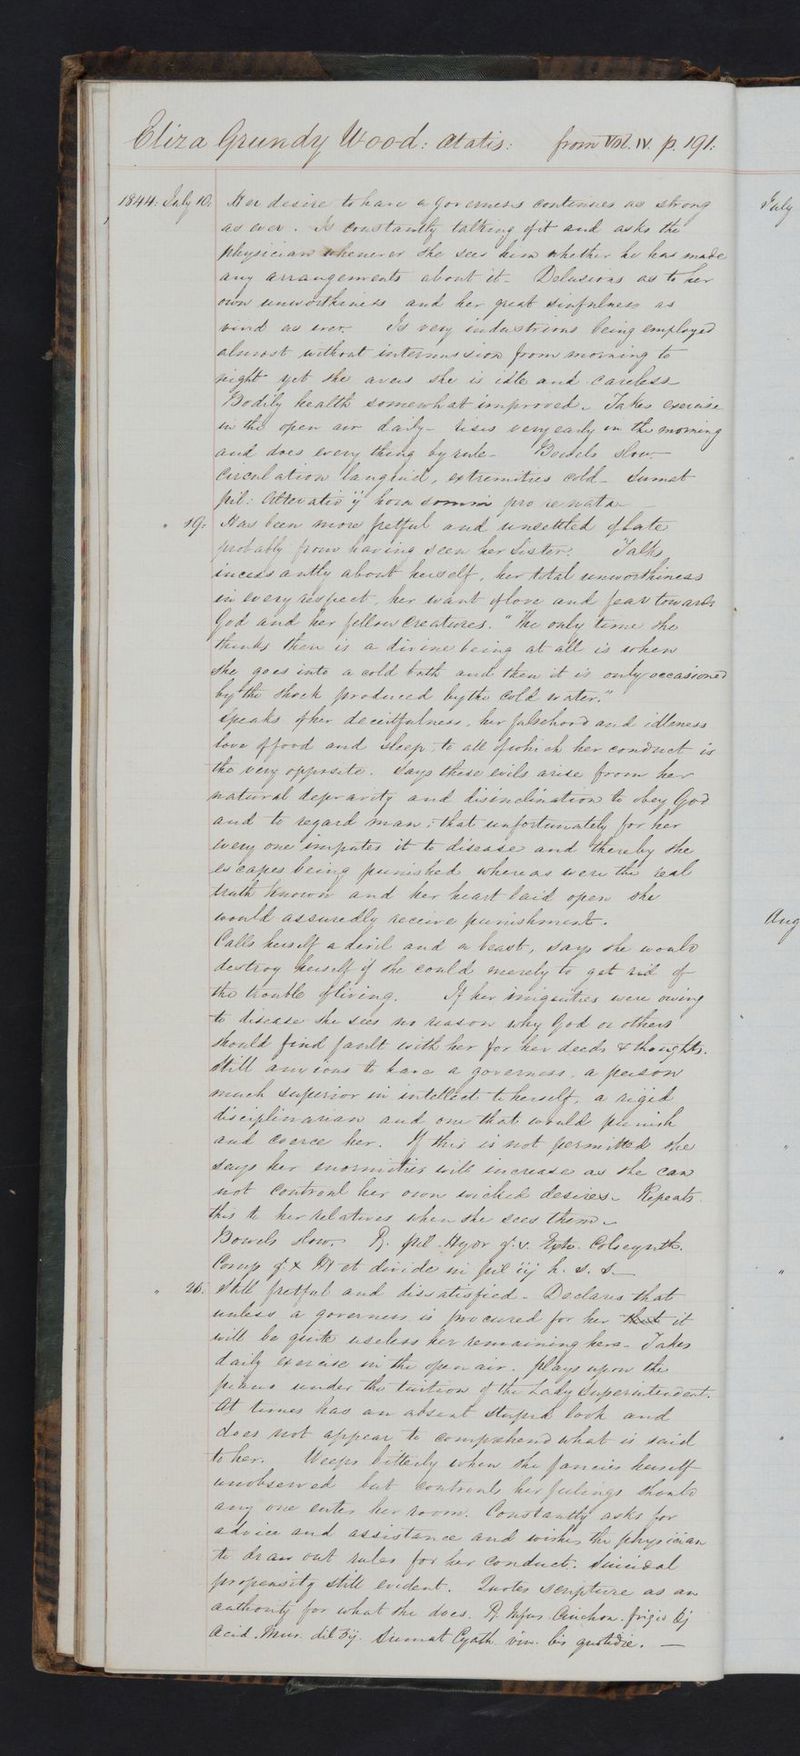 Eliza Grundy Wood: Ætatis: from Vol. IV. p. 191.
1844. July 10. Her desire to have a governess continues as strong
as ever. Is constantly talking of it and asks the
physician whenever she sees him whether he has made
any arrangements about it. Delusions as to her
own unworthiness and her great sinfulness as
vivid as ever. Is very industrious being employed
almost without intermission from morning to
night yet she avers she is idle and careless
Bodily health somewhat improved. Takes exercise
in the open air daily. Rises very early in the morning
and does every thing by rule. Bowels slow.
Circulation languid, extremities cold. Sumat
pil: Alterativ ij hora somni pro re nata
" 19. Has been more fretful and unsettled of late
probably from having seen her Sister. Talks
incessantly about herself, her total unworthiness
in every respect, her want of love and fear towards
God and her fellow Creatures. "The only time she
thinks there is a divine being at all is when
she goes into a cold bath and then it is only occasioned
by the shock produced by the cold water."
Speaks of her deceitfulness, her falsehood and idleness
love of food and sleep; to all of which her conduct is
the very opposite. Says these evils arise from her
natural depravity and disinclination to obey God
and to regard man; that unfortunately for her
every one imputes it to disease and thereby she
escapes being punished whereas were the real
truth known and her heart laid open she
would assuredly receive punishment.
Calls herself a devil and a beast, says she would
destroy herself if she could merely to get rid of
the trouble of living. If her iniquities were owing
to disease she sees no reason why God or others
should find fault with her for her deeds & thoughts.
Still anxious to have a governess, a person
much superior in intellect to herself, a rigid
disciplinarian and one that would punish
and coerce her. If this is not permitted she
says her enormities will increase as she can
not controul her own wicked desires. Repeats
this to her relatives when she sees them.
Bowels slow. R. Pil. Hydr gr. v. Extr. Colocynth.
Comp gr x Ft et divide in pil iij h. s. s.
" 26. Still fretful and dissatisfied. Declares that
unless a governess is procured for her that it
will be quite useless her remaining here. Takes
daily exercise in the open air. Plays upon the
piano under the tuition of the Lady Superintendent.
At times has an absent stupid look and
does not appear to comprehend what is said
to her. Weeps bitterly when she fancies herself
unobserved but controuls her feelings should
any one enter her room. Constantly asks for
advice and assistance and wishes the physician
to draw out rules for her conduct. Suicidal
propensity still evident. Quotes scripture as an
authority for what she does. R. Infus. Cinchon. frigid
Acid. Mur. dil ʒij. Sumat Cyath. vin. bis quotidie.
July
Aug